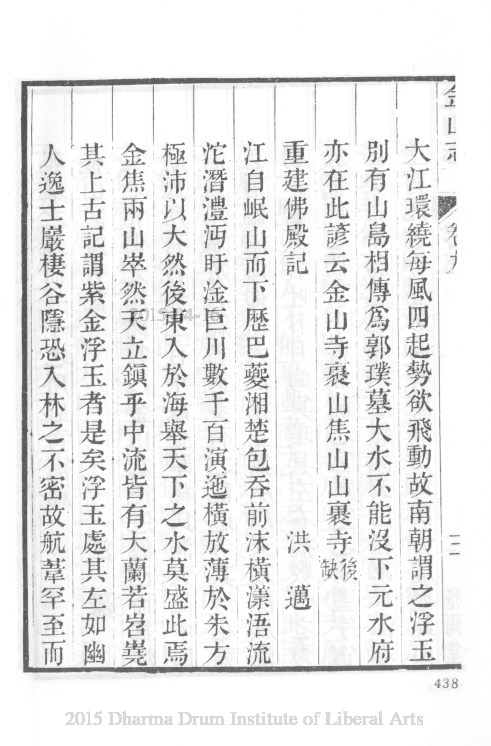 金山志 卷九 二
大江環繞每風四起勢欲飛動故南朝謂之浮玉
別有山島相傳爲郭璞墓大水不能沒下元水府
亦在此諺云金山寺裹山焦山山裹寺後缺
重建佛殿記 洪邁
江自岷山而下歷巴夔湘楚包吞前沫橫漾浯流
沱潛澧沔盱淦巨川數千百演迤橫放薄於朱方
極沛以大然後東入於海舉天下之水莫盛此焉
金焦兩山崒然天立鎭乎中流皆有大蘭若岧嶤
其上古記謂紫金浮玉者是矣浮玉處其左如幽
人逸士巖棲谷隱恐入林之不密故航葦罕至而
438
2015 Dharma Drum Institute of Liberal Arts